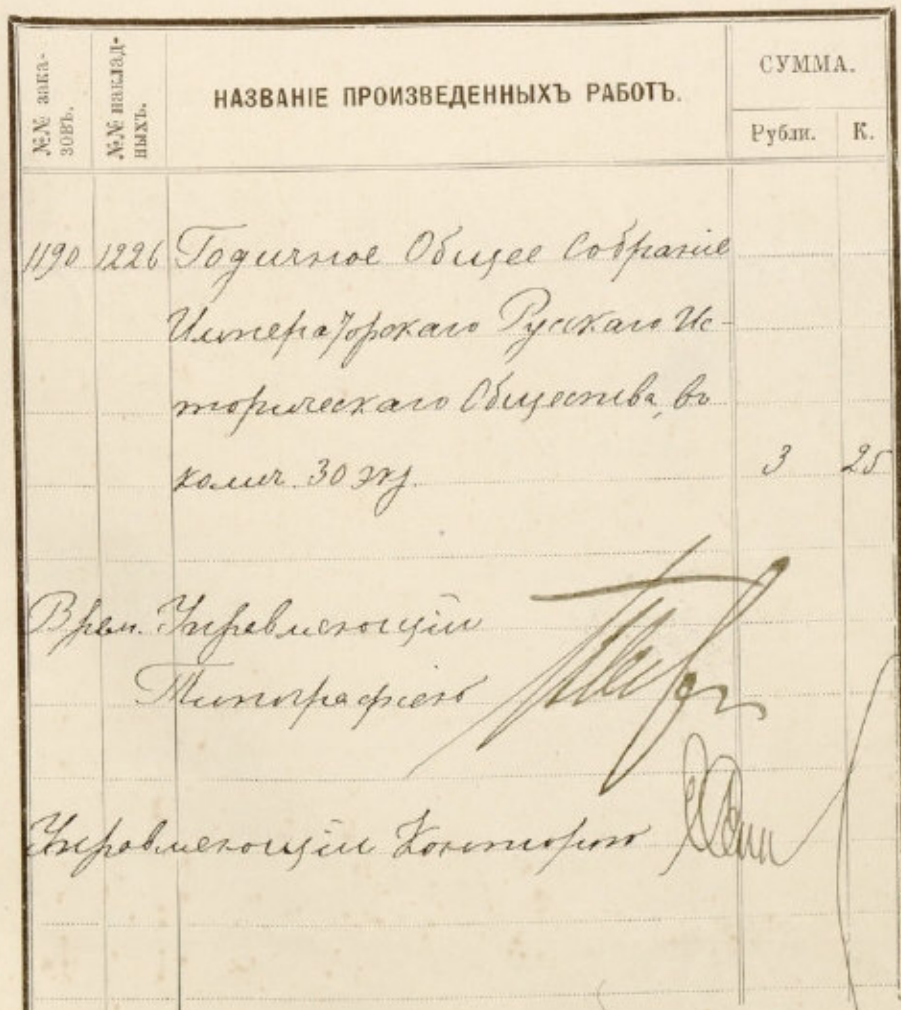 №№ зака-
зовъ.
№№ наклад-
ныхъ.
НАЗВАНІЕ ПРОИЗВЕДЕННЫХЪ РАБОТЪ.
СУММА.
Рубли. К.
1190 1226 Годичное Общее Собраніе
Императорскаго Русскаго Ис-
торическаго Общества, въ
колич. 30 экз. 3 25
Врем. Управляющій
Типографіею
Управляющій Конторою